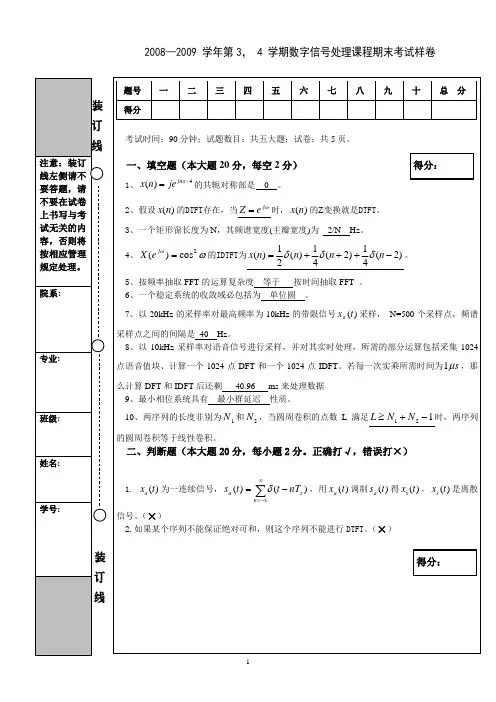 2008—2009 学年第3， 4 学期数字信号处理课程期末考试样卷
装
订
线
注意：装订
线左侧请不
要答题，请
不要在试卷
上书写与考
试无关的内
容，否则将
按相应管理
规定处理。
院系：
专业：
班级：
姓名：
学号：
装
订
线
题号 一 二 三 四 五 六 七 八 九 十 总 分
得分
考试时间：90 分钟；试题数目：共五大题；试卷：共 5 页。
一、填空题（本大题 20 分，每空 2 分）
得分：
1、x(n) = je^{jnπ/4} 的共轭对称部是 0 。
2、假设 x(n) 的DTFT存在，当 Z = e^{jω} 时，x(n) 的Z变换就是DTFT。
3、一个矩形窗长度为 N，其频谱宽度(主瓣宽度)为 2/N Hz。
4、X(e^{jω}) = cos²ω 的IDTFT为 x(n) = 1/2 δ(n) + 1/4 δ(n+2) + 1/4 δ(n−2) 。
5、按频率抽取 FFT 的运算复杂度 等于 按时间抽取 FFT 。
6、一个稳定系统的收敛域必包括为 单位圆 。
7、以 20kHz 的采样率对最高频率为 10kHz 的带限信号 x_a(t) 采样， N=500 个采样点，频谱
采样点之间的间隔是 40 Hz。
8、以 10kHz 采样率对语音信号进行采样，并对其实时处理，所需的部分运算包括采集 1024
点语音值块、计算一个 1024 点 DFT 和一个 1024 点 IDFT。若每一次实乘所需时间为 1μs，那
么计算 DFT 和 IDFT 后还剩 40.96 ms 来处理数据
9、最小相位系统具有 最小群延迟 性质。
10、两序列的长度非别为 N₁ 和 N₂，当圆周卷积的点数 L 满足 L ≥ N₁ + N₂ − 1 时，两序列
的圆周卷积等于线性卷积。
二、判断题（本大题 20 分，每小题 2 分。正确打√，错误打×）
1. x_a(t) 为一连续信号，s_a(t) = ∑_{n=−∞}^{∞} δ(t − nT_s)，用 x_a(t) 调制 s_a(t) 得 x_s(t)，x_s(t) 是离散
信号。（×）
2.如果某个序列不能保证绝对可和，则这个序列不能进行 DTFT。（×）
得分：
1